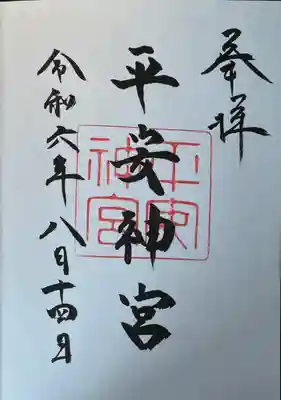 奉拝
平安神宮
平安神宮
令和六年八月十四日